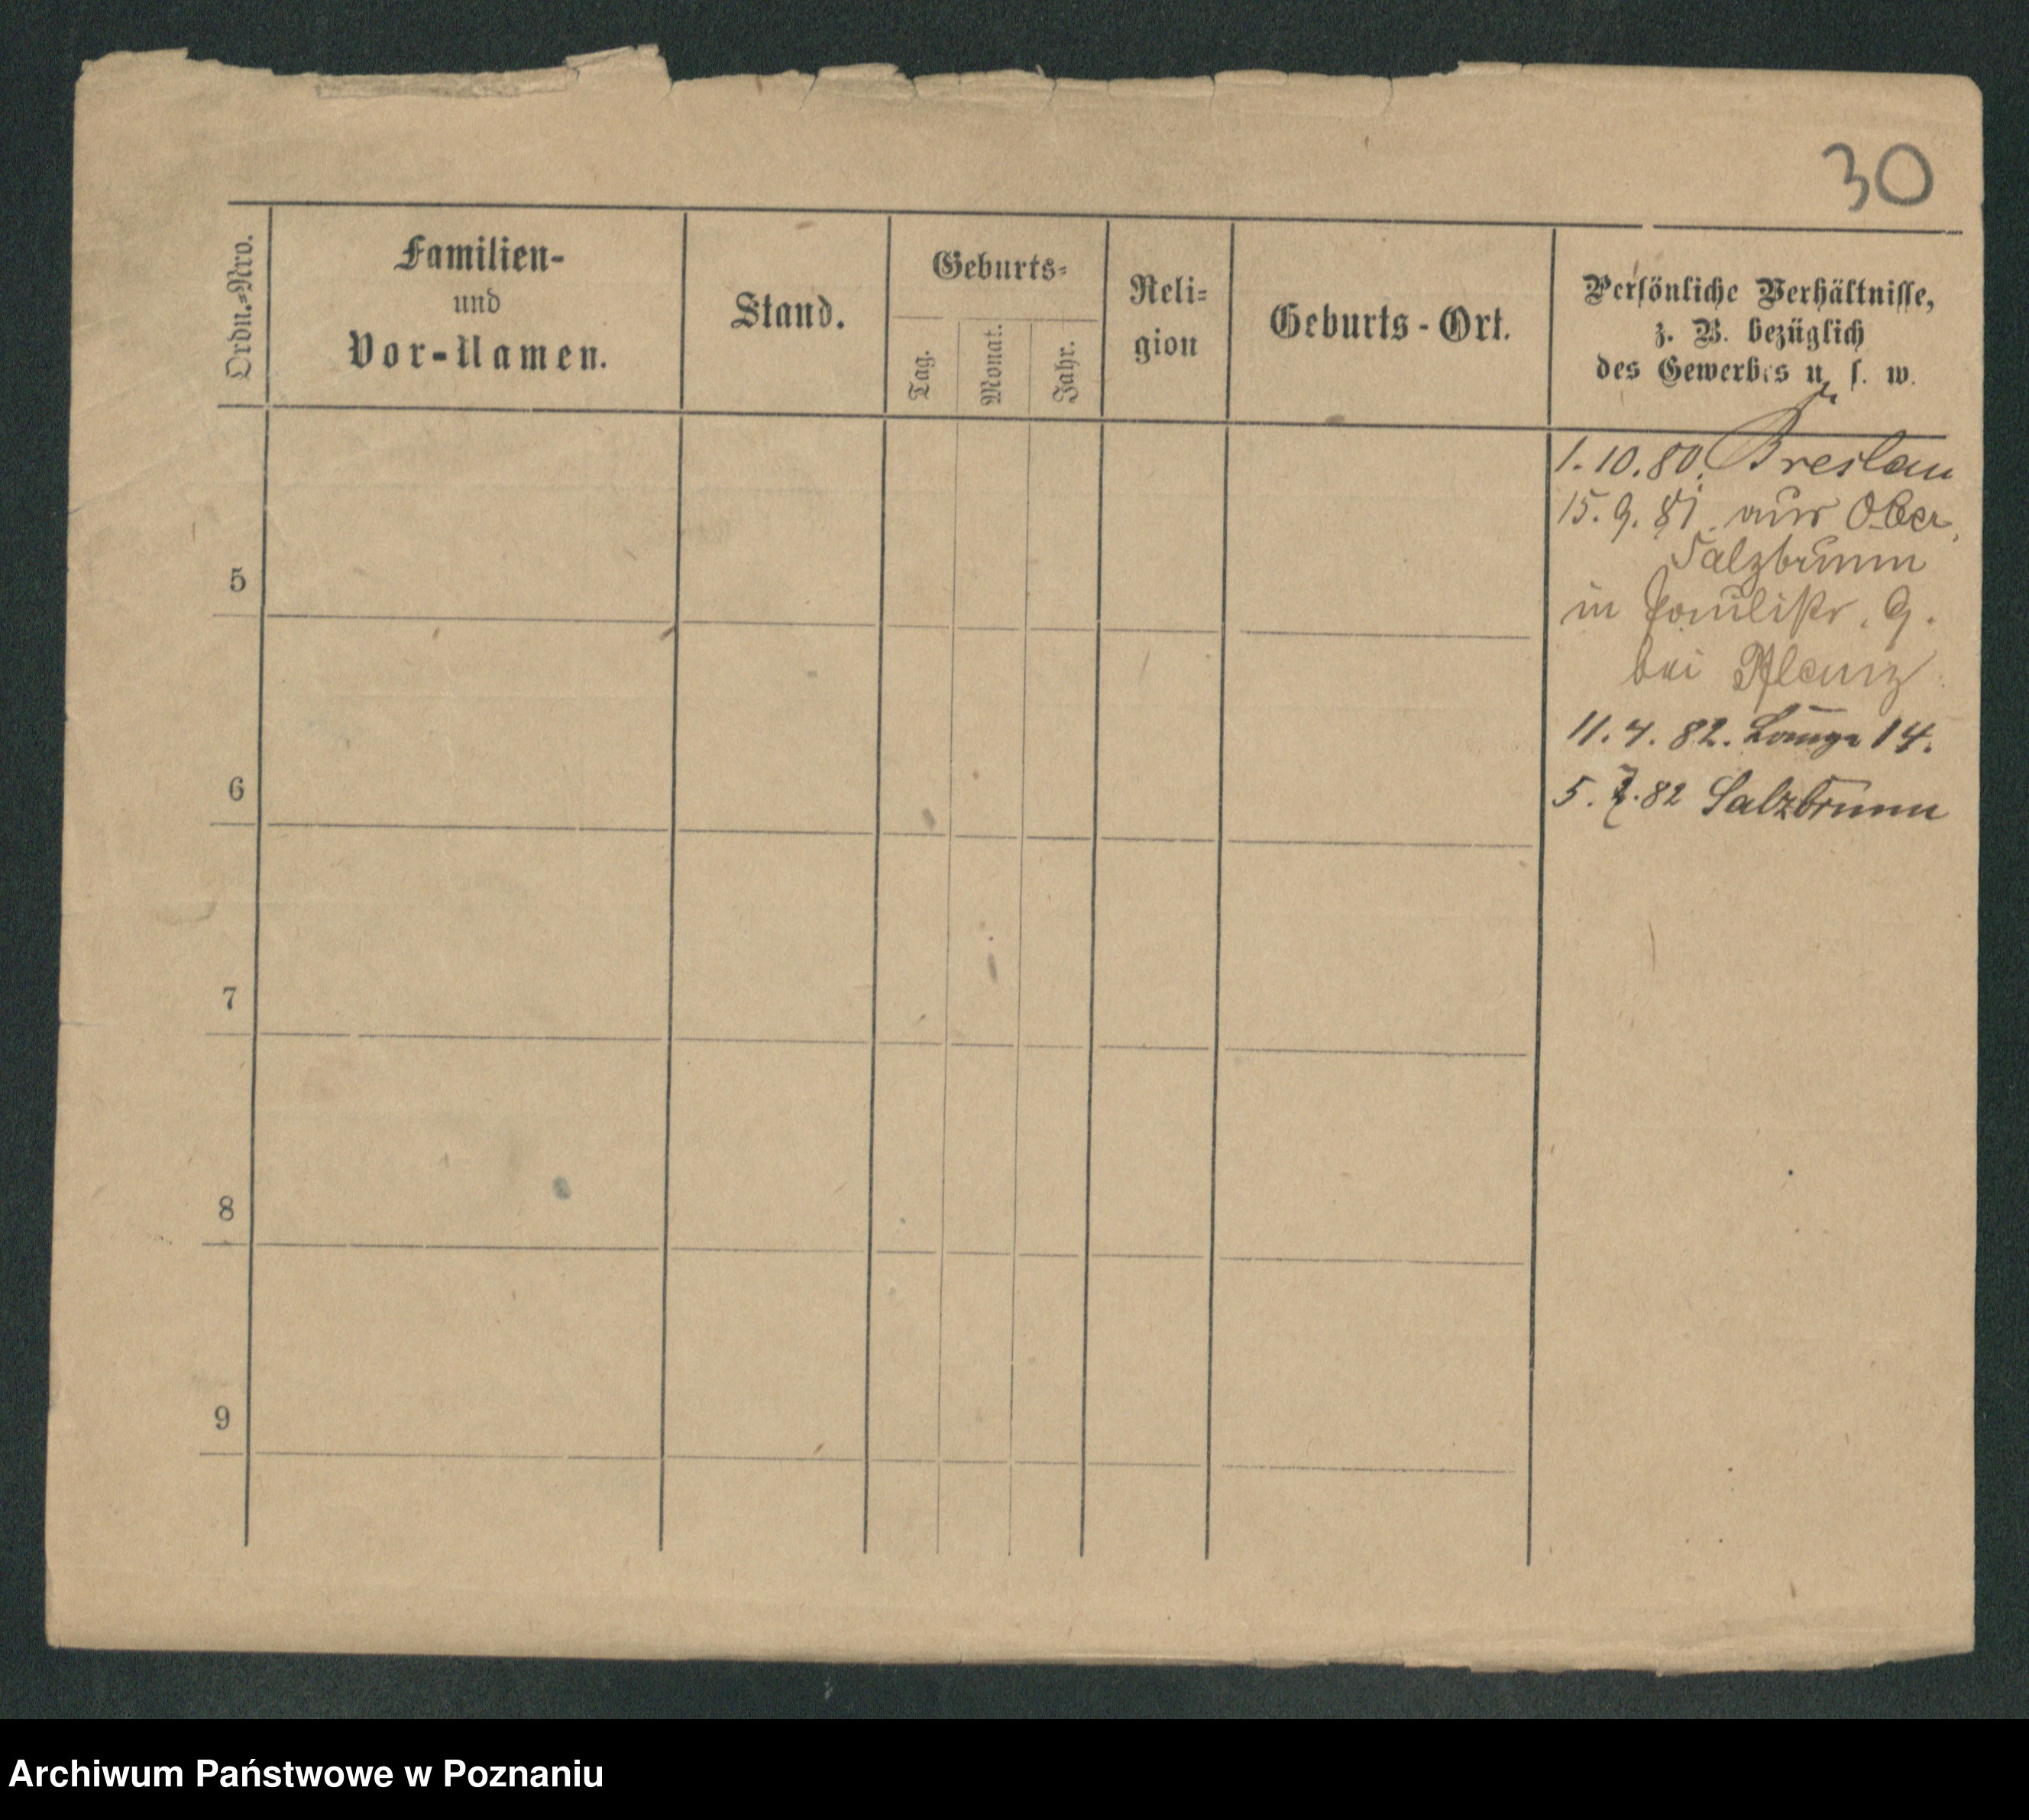 30
Ordn.=Nro.
Familien-
und
Vor-Namen.
Stand.
Geburts=
Tag.
Monat.
Jahr.
Reli=
gion
Geburts-Ort.
Persönliche Verhältnisse,
z. B. bezüglich
des Gewerbes u. s. w.
1.10.80. Breslau
15.9.81. aus Ober
Salzbrunn
in Paulikr. 9.
bei Pflanz
11.4.82. Lange 14.
5.7.82 Salzbrunn
5
6
7
8
9
Archiwum Państwowe w Poznaniu